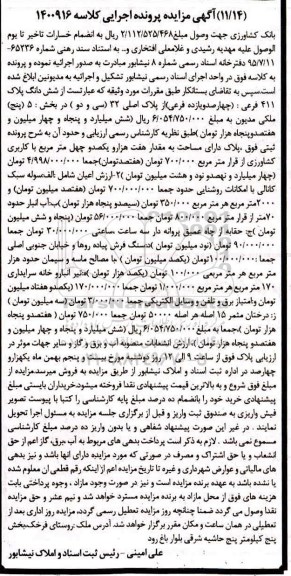 (۱۱/۱۴)آگهی مزایده پرونده اجرایی کلاسه ۱۴۰۰۹۱۶
بانک کشاورزی جهت وصول مبلغ۲/۱۱۲/۵۲۵/۴۶۸ ریال به انضمام خسارات تاخیر تا یوم
الوصول علیه مهدیه رشیدی و غلامعلی افتخاری و.. به استناد سند رهنی شماره ۶۵۲۳۶-
۹۵/۷/۱۱ دفترخانه اسناد رسمی شماره ۸ نیشابور مبادرت به صدور اجرائیه نموده و پرونده
به کلاسه فوق در واحد اجرای اسناد رسمی نیشابور تشکیل و اجرائیه به مدیونین ابلاغ شده
است.سپس به تقاضای بستانکار طبق مقررات مورد وثیقه که عبارتست از شش دانگ پلاک
۴۱۱ فرعی : (چهارصدویازده فرعی)از پلاک اصلی ۳۲ (سی و دو ) در بخش : ۵ (پنج)
ملکی مدیون به مبلغ ۶/۰۵۴/۷۵۰/۰۰۰ ریال (شش میلیارد و پنجاه و چهار میلیون و
هفتصدوپنجاه هزار تومان )طبق نظریه کارشناس رسمی ارزیابی و حدود آن به شرح پرونده
ثبتی فوق ،پلاک دارای مساحت به مقدار هفت هزارو یکصدو چهل متر مربع با کاربری
کشاورزی از قرار متر مربع ۷۰۰/۰۰۰ تومان (هفتصدتومان)جمعا ۴/۹۹۸/۰۰۰/۰۰۰ تومان
(چهار میلیارد و نهصدو نود و هشت میلیون تومان )۲-ارزش اعیان شامل :الف-سوله سبک
کانالی با امکانات روشنایی حدود جمعا ۷۰۰/۰۰۰/۰۰۰ تومان (هفتصد میلیون تومان) و
۲۰۰۰متر مربع هر متر مربع ۳۵۰/۰۰۰ تومان (سیصدو پنجاه هزار تومان )ب:آب انبار حدود
۷۰متر از قرار متر مربع ۸۰۰/۰۰۰ تومان جمعا ۵۶/۰۰۰/۰۰۰ تومان (پنجاه و شش میلیون
تومان )ج: حقابه از چاه عمیق پروانه دار به ساعت ساعتی ۳۰/۰۰۰/۰۰۰ تومان جمعا
۹۰/۰۰۰/۰۰۰ تومان (نود میلیون تومان )د:سنگ فرش پیاده روها و خیابان جنوبی اصلی
جمعا :۱۰۰/۰۰۰/۰۰۰تومان (یکصد میلیون تومان ) با مصالح ماسه و سیمان حدود هزار
متر مربع هر متر مربعی ۱۰۰/۰۰۰ تومان (یکصد هزار تومان )ه:تیر انبارو خانه سرایداری
۱۷۰ متر مربع هر متر مربع ۱/۰۰۰/۰۰۰ تومان جمعا ۱۷۰/۰۰۰/۰۰۰ (یکصدو هفتاد میلیون
تومان وامتیاز برق و تلفن و وسایل الکتریکی جمعا ۳/۰۰۰/۰۰۰ تومان (سه میلیون تومان )
ز: درختان مثمر ۱۵ اصله هر اصله ۵۰۰۰۰ تومان جمعا ۷۵۰/۰۰۰ تومان ( هفتصدو پنجاه
هزار تومان )،جمعا به مبلغ۶/۰۵۴/۷۵۰/۰۰۰ ریال (شش میلیارد و پنجاه و چهار میلیون و
هفتصدو پنجاه هزار تومان )،ارزش انشعابات منصوبه آب و برق و گاز و سایر جهات موثر در
ارزیابی پلاک فوق از ساعت ۹ الی ۱۲ روز دوشنبه مورخ بیست و پنجم بهمن ماه یکهزارو
چهارصد در اداره ثبت اسناد و املاک نیشابور از طریق مزایده به فروش میرسد.مزایده از
مبلغ فوق شروع و به بالاترین قیمت پیشنهادی نقدا فروخته میشود.خریداران بایستی مبلغ
پیشنهادی خرید خود را بانضمام ده درصد مبلغ پایه کارشناسی را کتبا با پیوست تصویر
فیش واریزی به صندوق ثبت واریز و قبل از برگزاری جلسه مزایده به مسئول اجرا تحویل
نمایند . در غیر این صورت پیشنهاد شفاهی و یا بدون واریز ده درصد مبلغ کارشناسی
مسموع نمی باشد . لازم به ذکر است پرداخت بدهی های مربوط به آب ،برق، گاز اعم از حق
انشعاب و یا حق اشتراک و مصرف در صورتی که مورد مزایده دارای انها باشد و نیز بدهی
های مالیاتی و عوارض شهرداری و غیره تا تاریخ مزایده اعم از اینکه رقم قطعی ان معلوم شده
یا نشده باشد به عهده برنده مزایده است و نیز در صورت وجود مازاد ، وجوه پرداختی بابت
هزینه های فوق از محل مازاد به برنده مزایده مسترد خواهد شد و نیم عشر و حق مزایده
نقدا وصول می گردد ضمنا چنانچه روز مزایده تعطیل رسمی گردد، مزایده روز اداری بعد از
تعطیلی در همان ساعت و مکان مقرر برگزار خواهد شد. آدرس ملک :روستای فرخک،بخش
پنج کیلومتر پنج حاشیه شرقی بلوار باغ رود
علی امینی - رئیس ثبت اسناد و املاک نیشابور